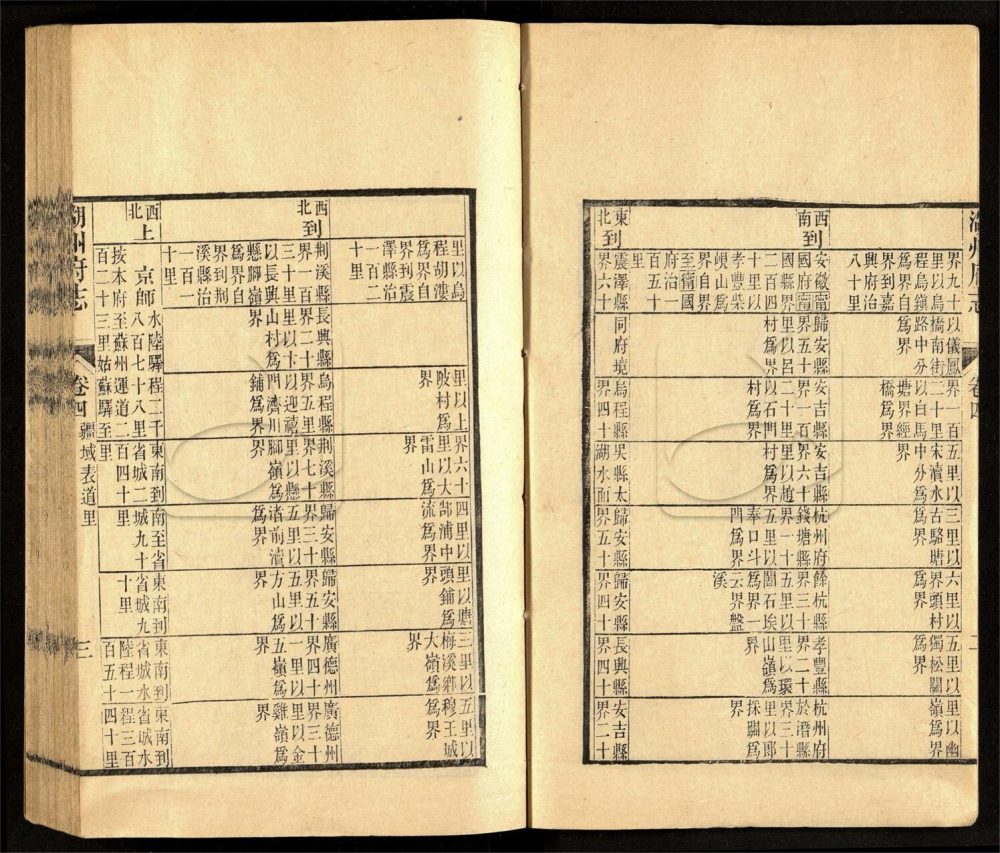 湖州府志
卷四
二
界九十
里以烏
程烏鎮
爲界自
界到嘉
興府治
八十里
以儀鳳
橋南街
路中分
爲界
界一百
二十里
以白馬
塘界經
橋爲界
五里以
宋瀆水
中分爲
界
三里以
古駱塘
爲界
六里以
界頭村
爲界
五里以
獨松關
爲界
里以幽
嶺爲界
西南到
安徽甯
國府甯
國縣界
二百四
十里以
孝豐柴
峴山爲
界自界
至甯國
府治一
百五十
里
歸安縣
界五十
里以呂
村爲界
安吉縣
界一百
二十里
以石門
村爲界
安吉縣
界六十
里以趙
村爲界
杭州府
錢塘縣
界一十
五里以
奉口斗
門爲界
餘杭縣
界三十
五里以
石埃
爲界一
云界盤
溪
孝豐縣
界二十
里以環
山嶺爲
界
杭州府
於潛縣
界三十
里以郎
採關爲
界
東北到
震澤縣
界六十
同府境
烏程縣
界四十
吳縣太
湖水面
歸安縣
界五十
歸安縣
界四十
長興縣
界四十
安吉縣
界二十
里以烏
程胡漊
爲界自
界到震
澤縣治
一百二
十里
里以上
陂村爲
界
界六十
里以大
雷山爲
界
四里以
郜浦中
流爲界
里以塘
頭鋪爲
界
三里以
梅溪鄉
大嶺爲
界
五里以
穆王城
爲界
西北到
荆溪縣
界一百
三十里
以長興
懸腳嶺
爲界自
界到荆
溪縣治
一百一
十里
長興縣
界二十
里以卞
山村爲
界
烏程縣
界五里
以迎禧
門濟川
鋪爲界
荆溪縣
界七十
里以懸
腳嶺爲
界
歸安縣
界三十
五里以
渚前瀆
爲界
歸安縣
界五十
五里以
方山爲
界
廣德州
界四十
一里以
五嶺爲
界
廣德州
界三十
里以金
雞嶺爲
界
西北上
京師水陸驛程二千
八百七十八里
按本府至蘇州運道二
百二十三里姑蘇驛至
東南到
省城二
百四十
里
南至省
城九十
里
東南到
省城九
十里
東南到
省城水
陸程一
百五十
里
東南到
省城水
程三百
四十里
湖州府志
卷四
疆域表道里
三